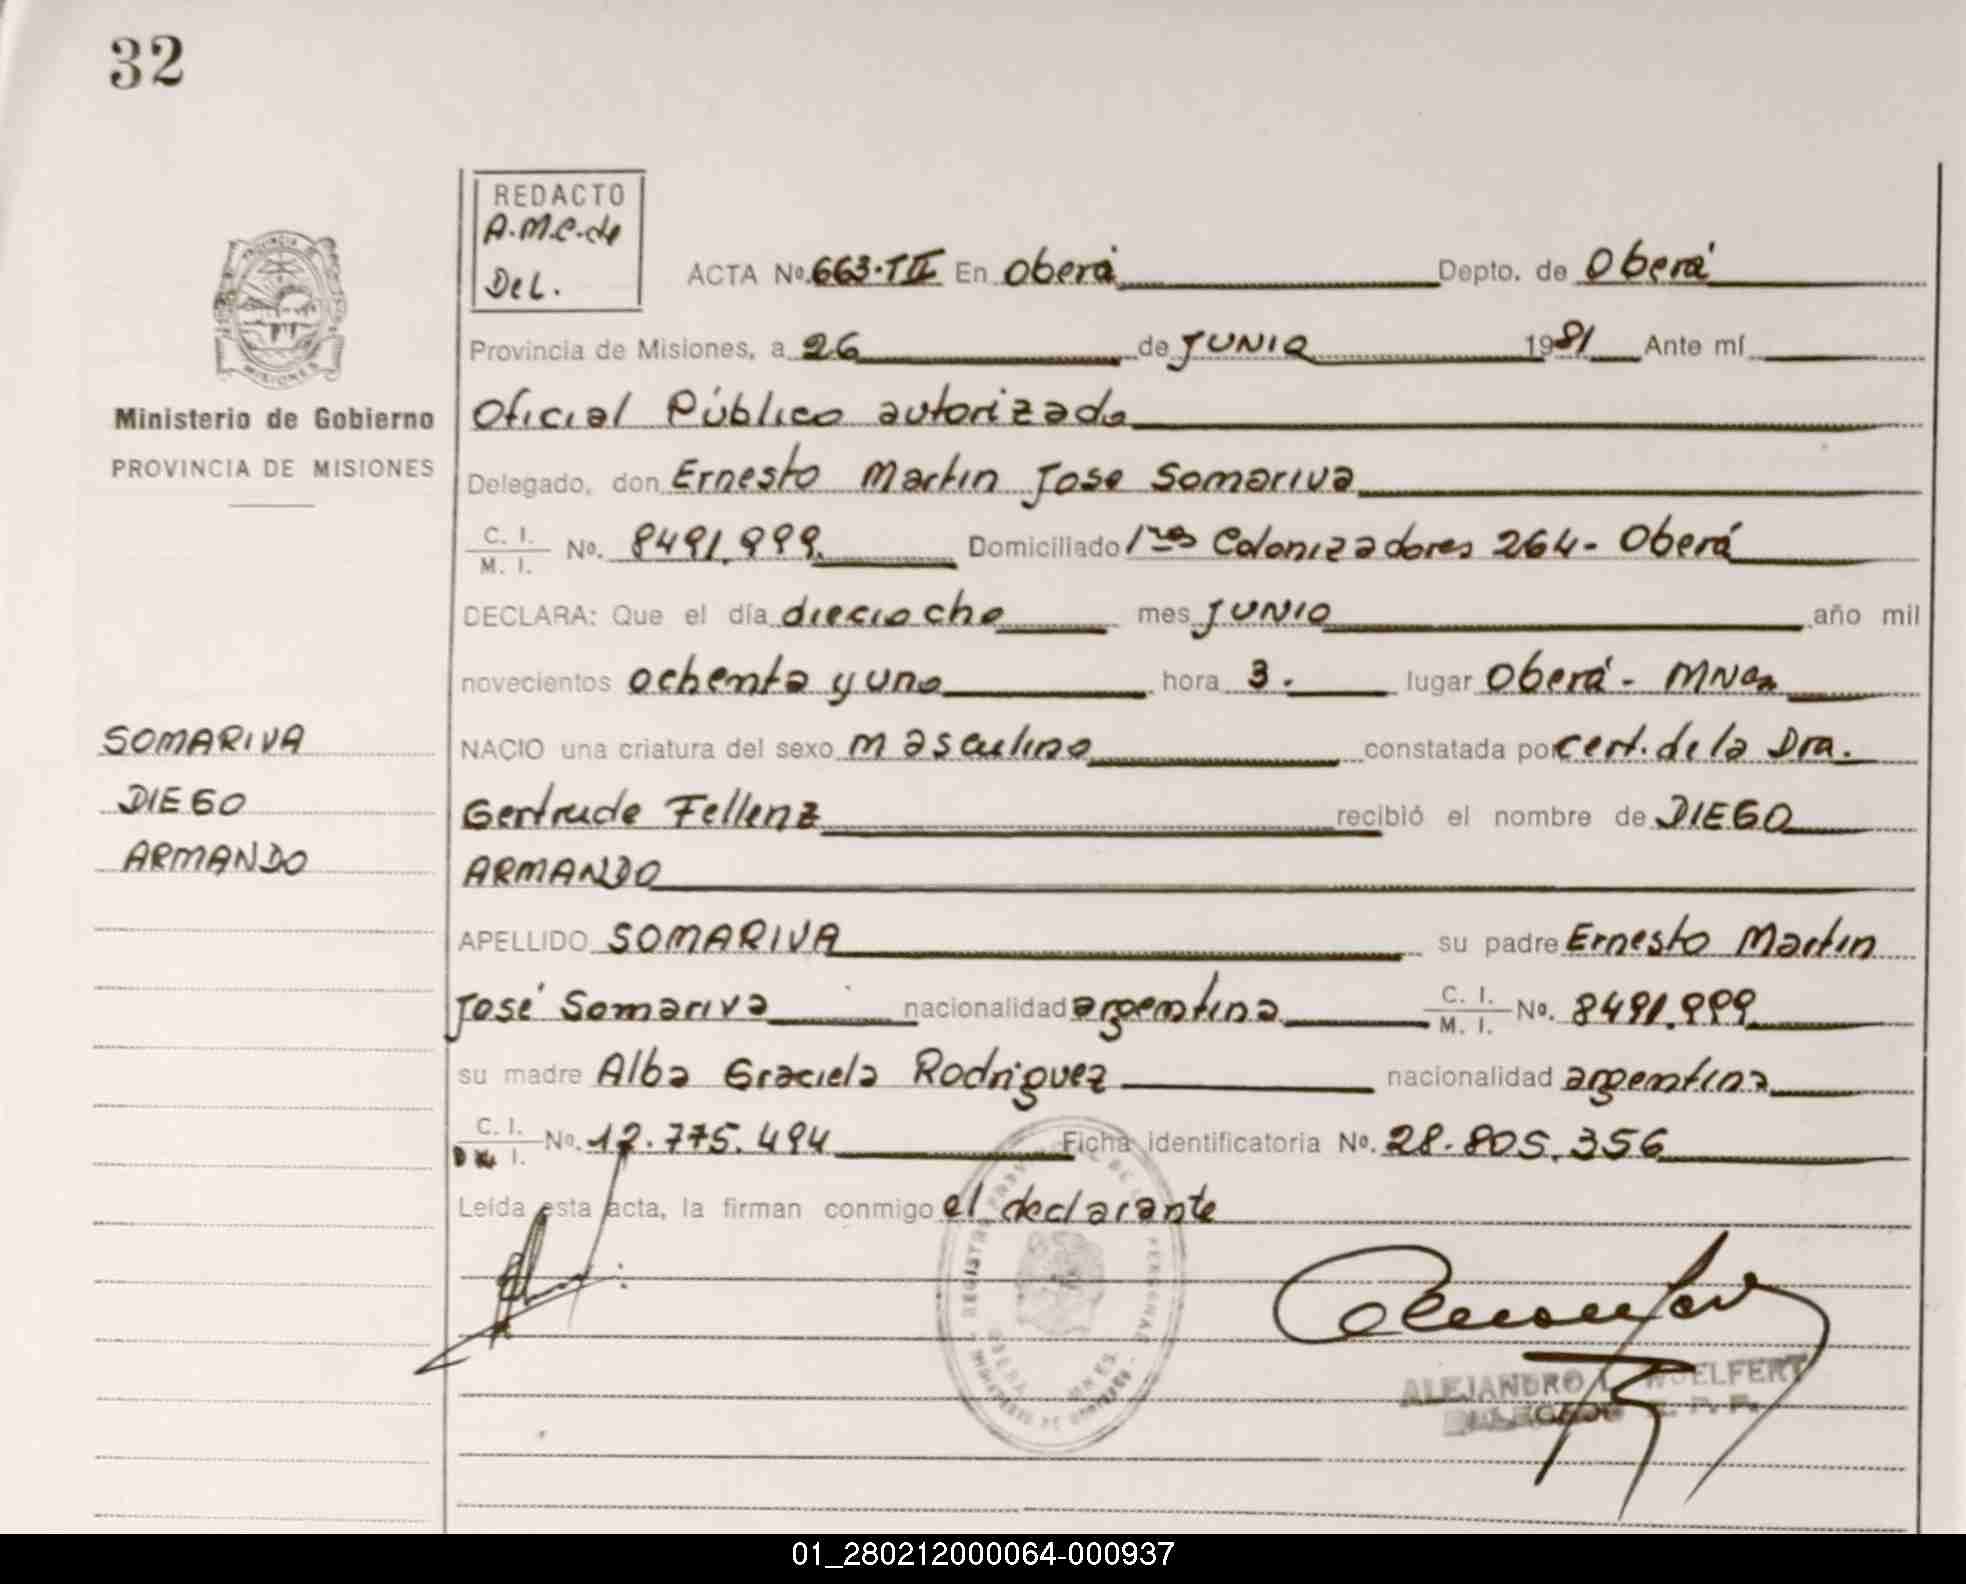 32
REDACTO
A.M.C. de
Del.
ACTA No. 663-TII En Oberá Depto. de Oberá
Provincia de Misiones, a 26 de JUNIO 1981 Ante mí
Ministerio de Gobierno
PROVINCIA DE MISIONES
Oficial Público autorizado
Delegado, don Ernesto Martin Jose Somariva
C. I. / M. I. No. 8491.999. Domiciliado 1ros Colonizadores 264 - Oberá
DECLARA: Que el día dieciocho mes JUNIO año mil
novecientos ochenta y uno hora 3. lugar Oberá - MNes
SOMARIVA
DIEGO
ARMANDO
NACIO una criatura del sexo masculino constatada por cert. de la Dra.
Gertrude Fellenz recibió el nombre de DIEGO
ARMANDO
APELLIDO SOMARIVA su padre Ernesto Martin
José Somariva nacionalidad argentina C. I. / M. I. No. 8491.999
su madre Alba Graciela Rodriguez nacionalidad argentina
C. I. / D N I. No. 12.775.494 Ficha identificatoria No. 28.805.356
Leída esta acta, la firman conmigo el declarante
ALEJANDRO L. WOELFERT
DELEGADO R. P. P.
01_280212000064-000937